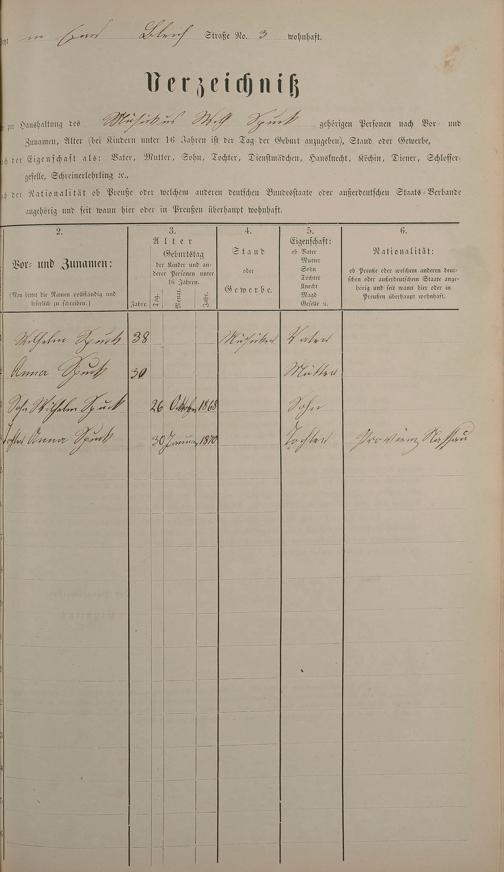 in Ems Bleich Straße No. 3 wohnhaft.
Verzeichniß
zur Haushaltung des Musikus Spuck gehörigen Personen nach Vor- und
Zunamen, Alter (bei Kindern unter 16 Jahren ist der Tag der Geburt anzugeben), Stand oder Gewerbe,
nach der Eigenschaft als: Vater, Mutter, Sohn, Tochter, Dienstmädchen, Hausknecht, Köchin, Diener, Schlosser-
geselle, Schreinerlehrling ꝛc.,
nach der Nationalität ob Preuße oder welchem anderen deutschen Bundesstaate oder außerdeutschen Staats-Verbande
angehörig und seit wann hier oder in Preußen überhaupt wohnhaft.
2. 3. 4. 5. 6.
Vor- und Zunamen:
(Man bittet die Namen vollständig und leserlich zu schreiben.)
Alter
Geburtstag
der Kinder und an-
derer Personen unter
16 Jahren.
Jahre. Tag. Monat. Jahr.
Stand
oder
Gewerbe.
Eigenschaft:
ob Vater
Mutter
Sohn
Tochter
Knecht
Magd
Geselle u.
Nationalität:
ob Preuße oder welchem anderen deut-
schen oder außerdeutschen Staate ange-
hörig und seit wann hier oder in
Preußen überhaupt wohnhaft.
Wilhelm Spuck 38 Musiker Vater
Anna Spuck 30 Mutter
Sohn Wilhelm Spuck 26 October 1868 Sohn
Tochter Anna Spuck 30 Januar 1870 Tochter Provinz Nassau